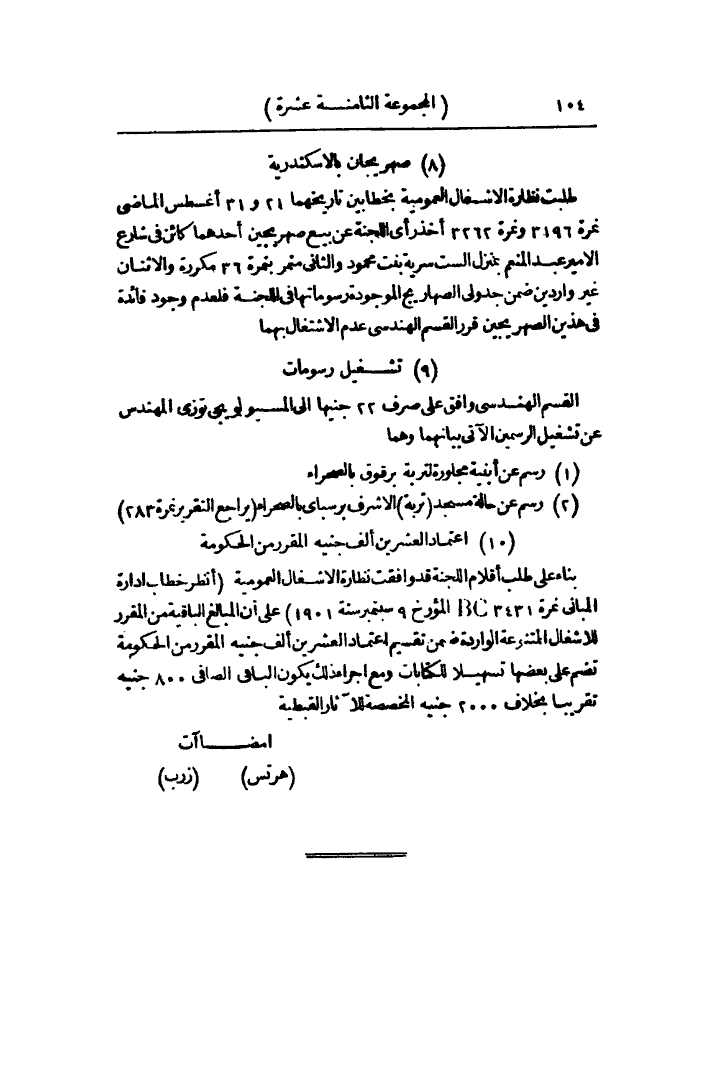 ١٠٤ (المجموعة الثامنة عشرة)
(٨) صهريجان بالاسكندرية
طلبت نظارة الاشغال العمومية بخطابين تاريخهما ٢١ و ٣١ أغسطس الماضى
نمرة ٣١٩٦ ونمرة ٣٢٦٢ أخذ رأى اللجنة عن بيع صهريجين أحدهما كائن فى شارع
الامير عبد المنعم بمنزل الست سرية بنت محمود والثانى متمر بنمرة ٣٦ مكررة والاثنان
غير واردين ضمن جدولى الصهاريج الموجودة رسوماتها فى اللجنة فلعدم وجود فائدة
فى هذين الصهريجين قرر القسم الهندسى عدم الاشتغال بهما
(٩) تشغيل رسومات
القسم الهندسى وافق على صرف ٢٢ جنيها الى المسيو لويجى توزى المهندس
عن تشغيل الرسمين الآتى بيانهما وهما
(١) رسم عن أبنية مجاورة لتربة برقوق بالصحراء
(٢) رسم عن حالة مسجد (تربة) الاشرف برسباى بالصحراء (يراجع التقرير نمرة ٢٨٣)
(١٠) اعتماد العشرين ألف جنيه المقرر من الحكومة
بناء على طلب أقلام اللجنة قد وافقت نظارة الاشغال العمومية (أنظر خطاب ادارة
المبانى نمرة ٣٤٣١ BC المؤرخ ٩ سبتمبر سنة ١٩٠١) على أن المبالغ الباقية من المقرر
للاشغال المتنوعة الواردة ضمن تقسيم اعتماد العشرين ألف جنيه المقرر من الحكومة
تضم على بعضها تسهيلا للكتابات ومع اجراء ذلك يكون الباقى الصافى ٨٠٠ جنيه
تقريبا بخلاف ٢٠٠٠ جنيه المخصصة للآثار القبطية
امضاآت
(هرتس) (زرب)